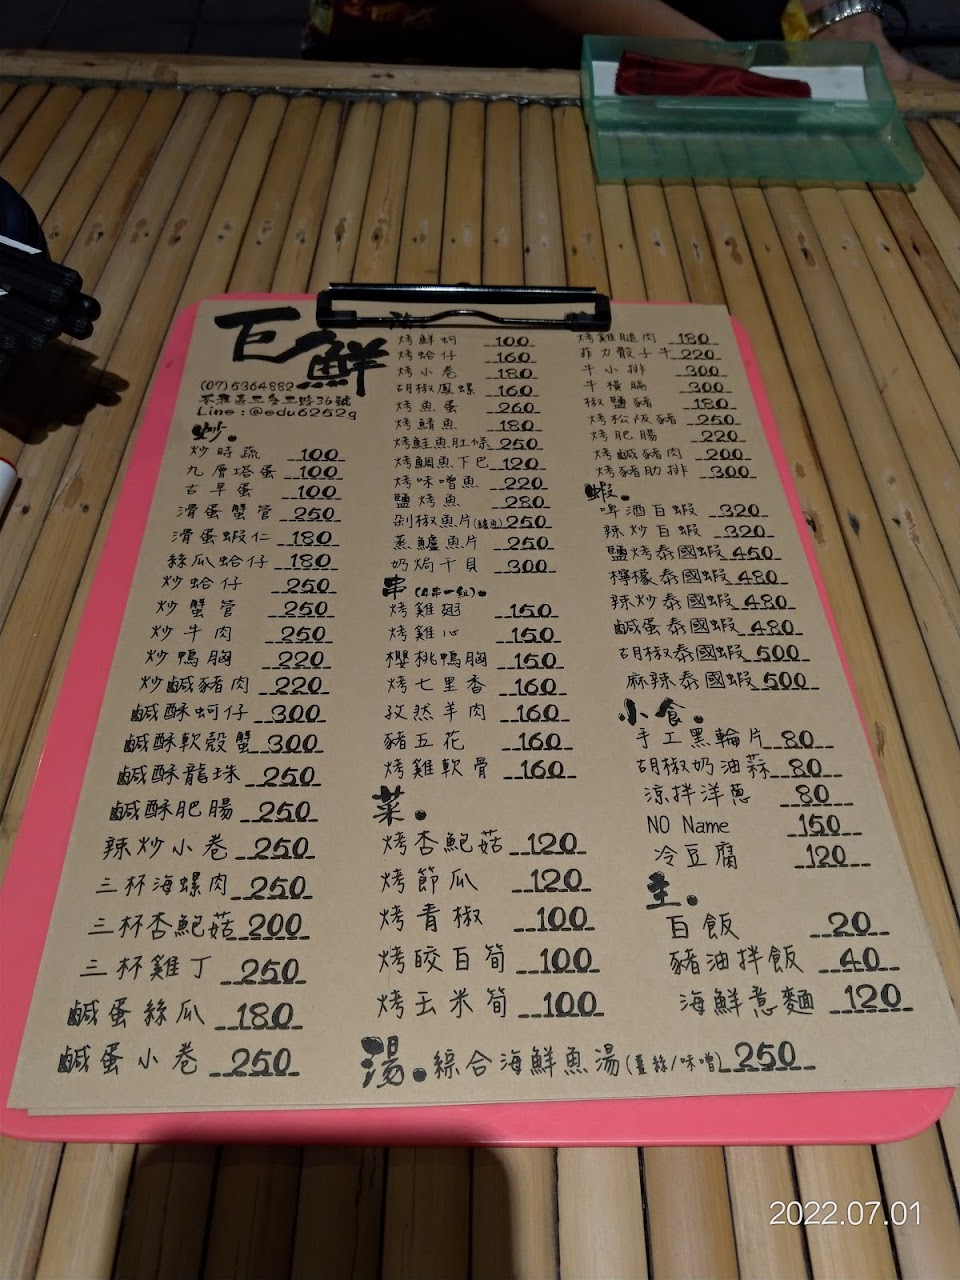 巨鮮
(07)5364882
苓雅區三多三路36號
Line:@edu6252q
炒.
炒時蔬 100
九層塔蛋 100
古早蛋 100
滑蛋蟹管 250
滑蛋蝦仁 180
絲瓜蛤仔 180
炒蛤仔 250
炒蟹管 250
炒牛肉 250
炒鴨胸 220
炒鹹豬肉 220
鹹酥蚵仔 300
鹹酥軟殼蟹 300
鹹酥龍珠 250
鹹酥肥腸 250
辣炒小卷 250
三杯海螺肉 250
三杯杏鮑菇 200
三杯雞丁 250
鹹蛋絲瓜 180
鹹蛋小卷 250
烤鮮蚵 100
烤蛤仔 160
烤小卷 180
胡椒鳳螺 160
烤魚蛋 260
烤鯖魚 180
烤鮭魚肚條 250
烤鯛魚下巴 120
烤味噌魚 220
鹽烤魚 280
剁椒魚片 250
蒸鱸魚片 250
奶焗干貝 300
串(4串一組).
烤雞翅 150
烤雞心 150
櫻桃鴨胸 150
烤七里香 160
孜然羊肉 160
豬五花 160
烤雞軟骨 160
菜.
烤杏鮑菇 120
烤節瓜 120
烤青椒 100
烤皎白筍 100
烤玉米筍 100
湯.綜合海鮮魚湯(薑絲/味噌) 250
烤雞腿肉 180
菲力骰子牛 220
牛小排 300
牛橫膈 300
椒鹽豬 180
烤松阪豬 250
烤肥腸 220
烤鹹豬肉 200
烤豬肋排 300
蝦.
啤酒白蝦 320
辣炒白蝦 320
鹽烤泰國蝦 450
檸檬泰國蝦 480
辣炒泰國蝦 480
鹹蛋泰國蝦 480
胡椒泰國蝦 500
麻辣泰國蝦 500
小食.
手工黑輪片 80
胡椒奶油蒜 80
涼拌洋蔥 80
NO Name 150
冷豆腐 120
主.
白飯 20
豬油拌飯 40
海鮮煮麵 120
2022.07.01